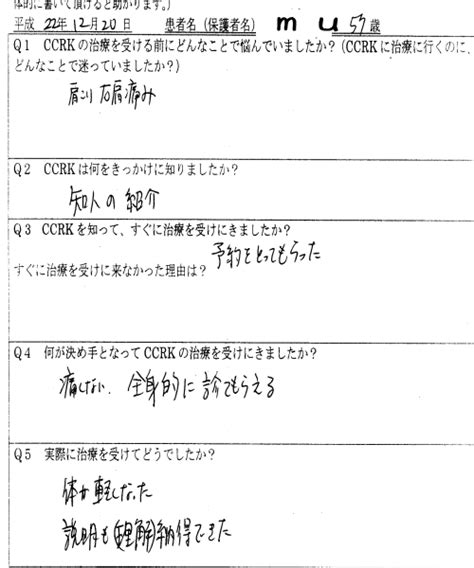 体的に書いて頂けると助かります。)
平成 22年12月20日 患者名(保護者名) m u 57歳
Q1 CCRKの治療を受ける前にどんなことで悩んでいましたか?(CCRKに治療に行くのに、
どんなことで迷っていましたか?)
肩こり 右肩痛み
Q2 CCRKは何をきっかけに知りましたか?
知人の紹介
Q3 CCRKを知って、すぐに治療を受けにきましたか?
予約をとってもらった
すぐに治療を受けに来なかった理由は?
Q4 何が決め手となってCCRKの治療を受けにきましたか?
痛くない、全身的に診てもらえる
Q5 実際に治療を受けてどうでしたか?
体が軽くなった
説明も理解納得できた